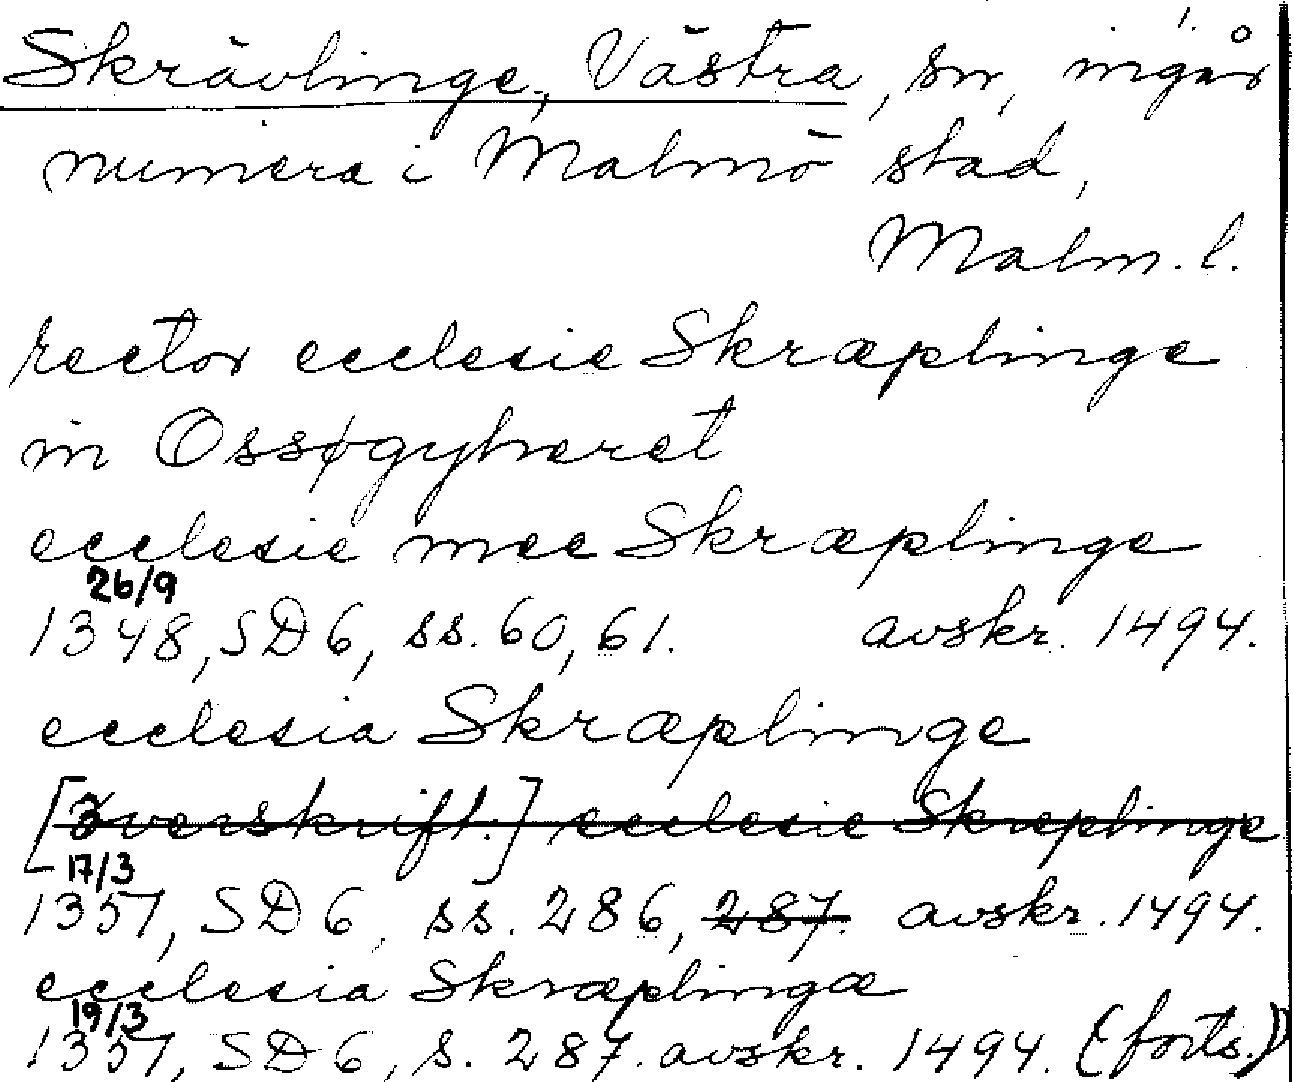 Skrävlinge, Västra, sn, ingår
numera i Malmö stad,
Malm. l.
rector ecclesie Skræplinge
in Ossøgyhæret
ecclesie mee Skræplinge
26/9
1348, SD 6, ss. 60, 61. avskr. 1494.
ecclesia Skræplinge
[överskrift.] ecclesie Skreplinge
17/3
1357, SD 6, ss. 286, 287. avskr. 1494.
ecclesia Skræplingæ
19/3
1357, SD 6, s. 287. avskr. 1494. (forts.)